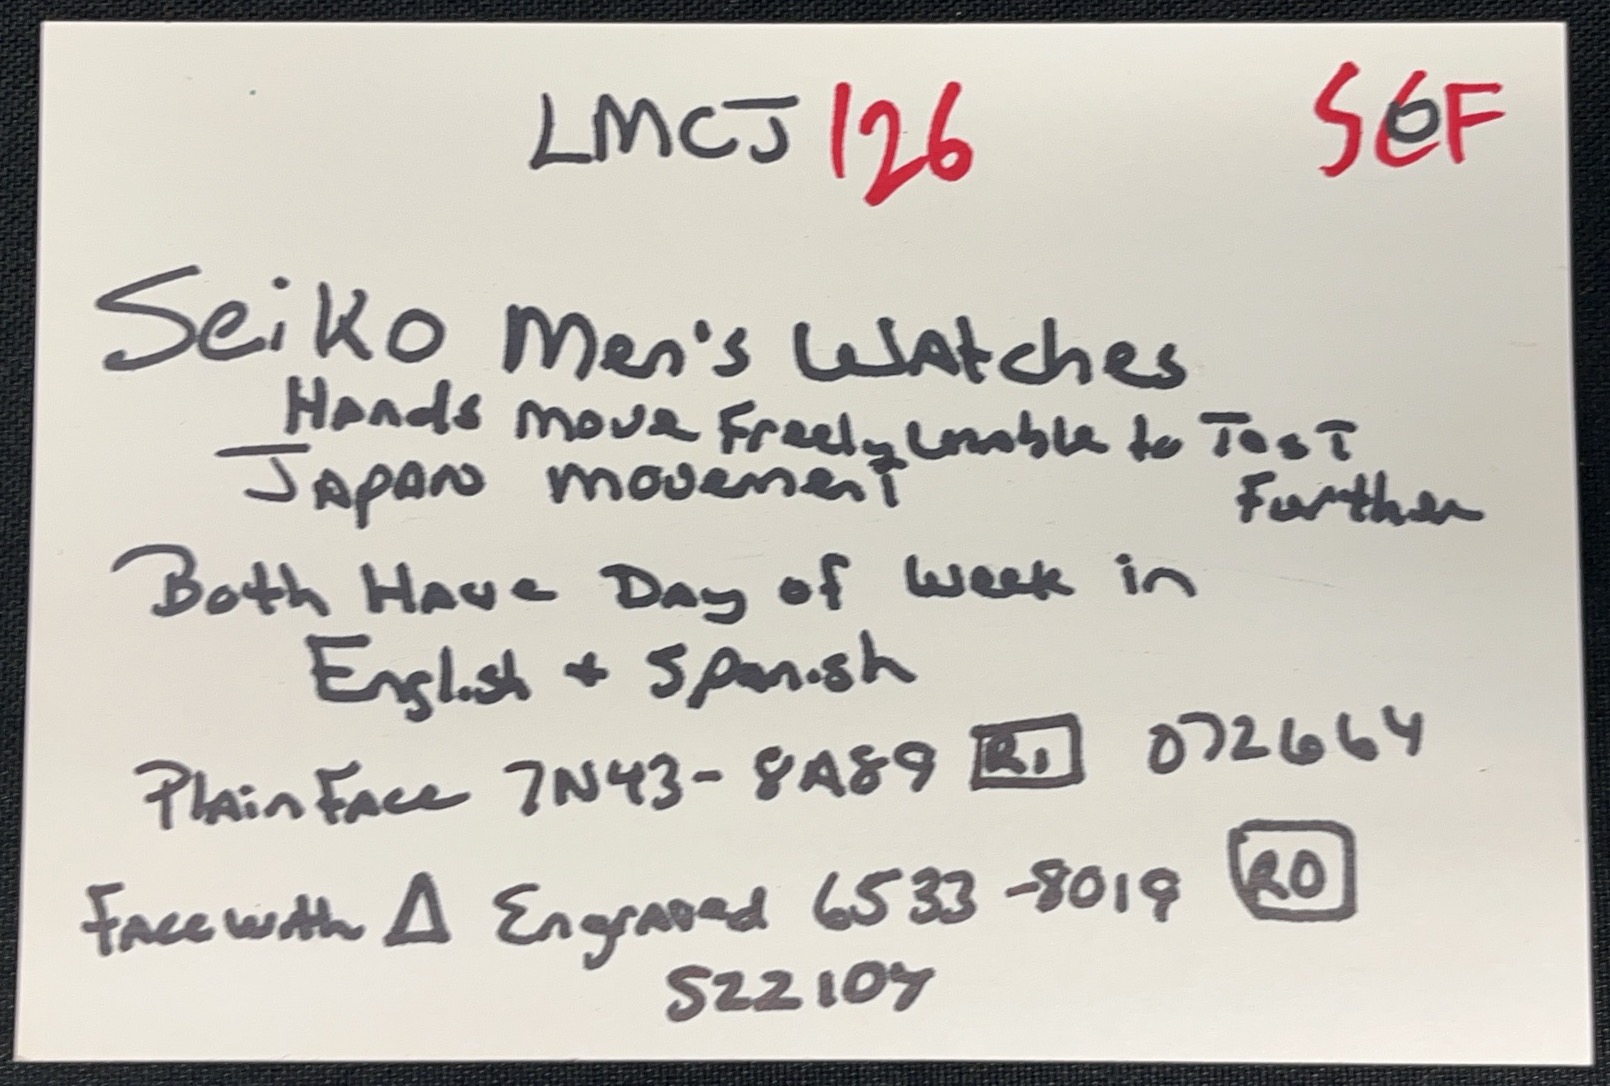 LMCJ 126 SEF
Seiko Men's Watches
Hands move Freely unable to Test
Japan movement Further
Both Have Day of Week in
English + Spanish
Plain Face 7N43-8A89 R1 072664
Face with Δ Engraved 6533-8019 R0
522104